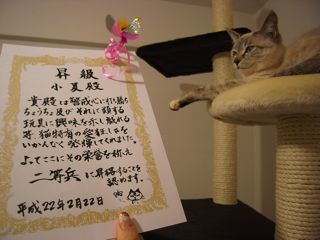 昇級
小夏殿
貴殿は警戒心に打ち勝ち
ちょうちょ及びそれに類する
玩具に興味を示し戯れる
等、猫特有の愛狂しさを
いかんなく発揮してくれました。
よってここにその栄誉を称え
二等兵に昇格することを
認めます。
平成22年2月22日